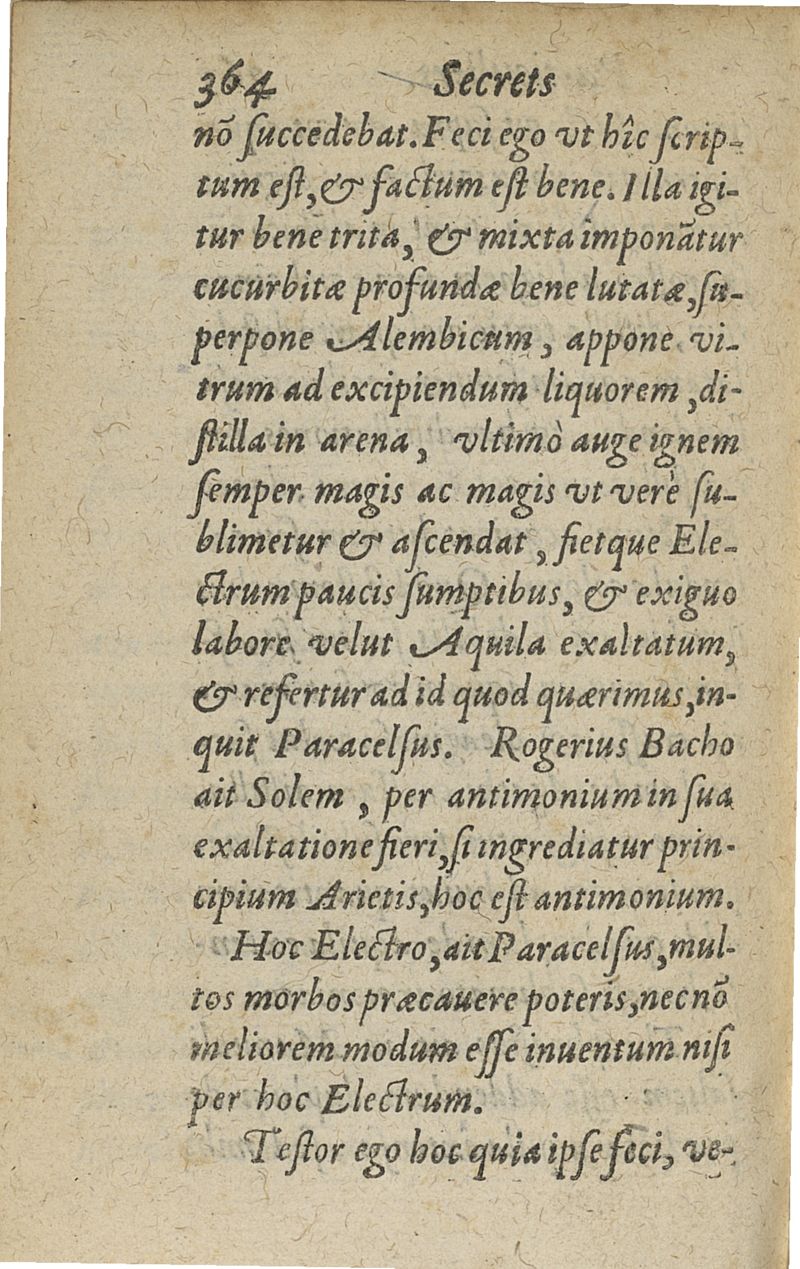 364 Secrets
nõ ſuccedebat. Feci ego vt hîc ſcrip-
tum eſt, & factum eſt bene. Illa igi-
tur bene trita, & mixta imponãtur
cucurbitæ profundæ bene lutatæ, ſu-
perpone Alembicum, appone vi-
trum ad excipiendum liquorem, di-
ſtilla in arena, vltimò auge ignem
ſemper magis ac magis vt verè ſu-
blimetur & aſcendat, fietque Ele-
ctrum paucis ſumptibus, & exiguo
labore velut Aquila exaltatum,
& refertur ad id quod quærimus, in-
quit Paracelſus. Rogerius Bacho
ait Solem, per antimonium in ſua
exaltatione fieri, ſi ingrediatur prin-
cipium Arietis, hoc eſt antimonium.
Hoc Electro, ait Paracelſus, mul-
tos morbos præcauere poteris, nec nõ
meliorem modum eſſe inuentum niſi
per hoc Electrum.
Teſtor ego hoc quia ipſe feci, ve-